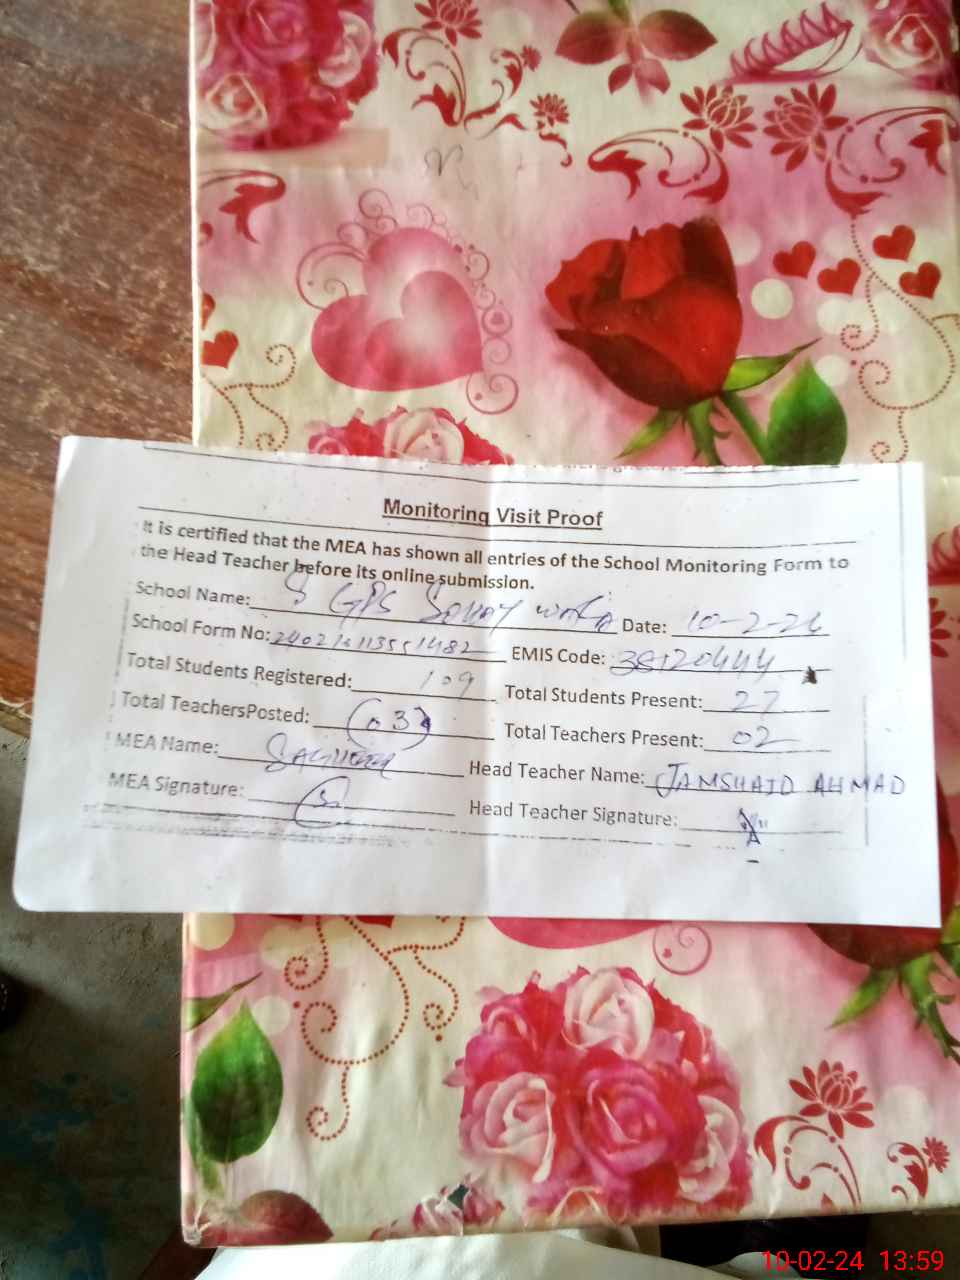 Monitoring Visit Proof
It is certified that the MEA has shown all entries of the School Monitoring Form to
the Head Teacher before its online submission.
School Name: GPS Date: 10-2-24
School Form No: EMIS Code: 38120444
Total Students Registered: 109 Total Students Present: 27
Total TeachersPosted: 03 Total Teachers Present: 02
MEA Name: Head Teacher Name: JAMSHAID AHMAD
MEA Signature: Head Teacher Signature:
10-02-24 13:59